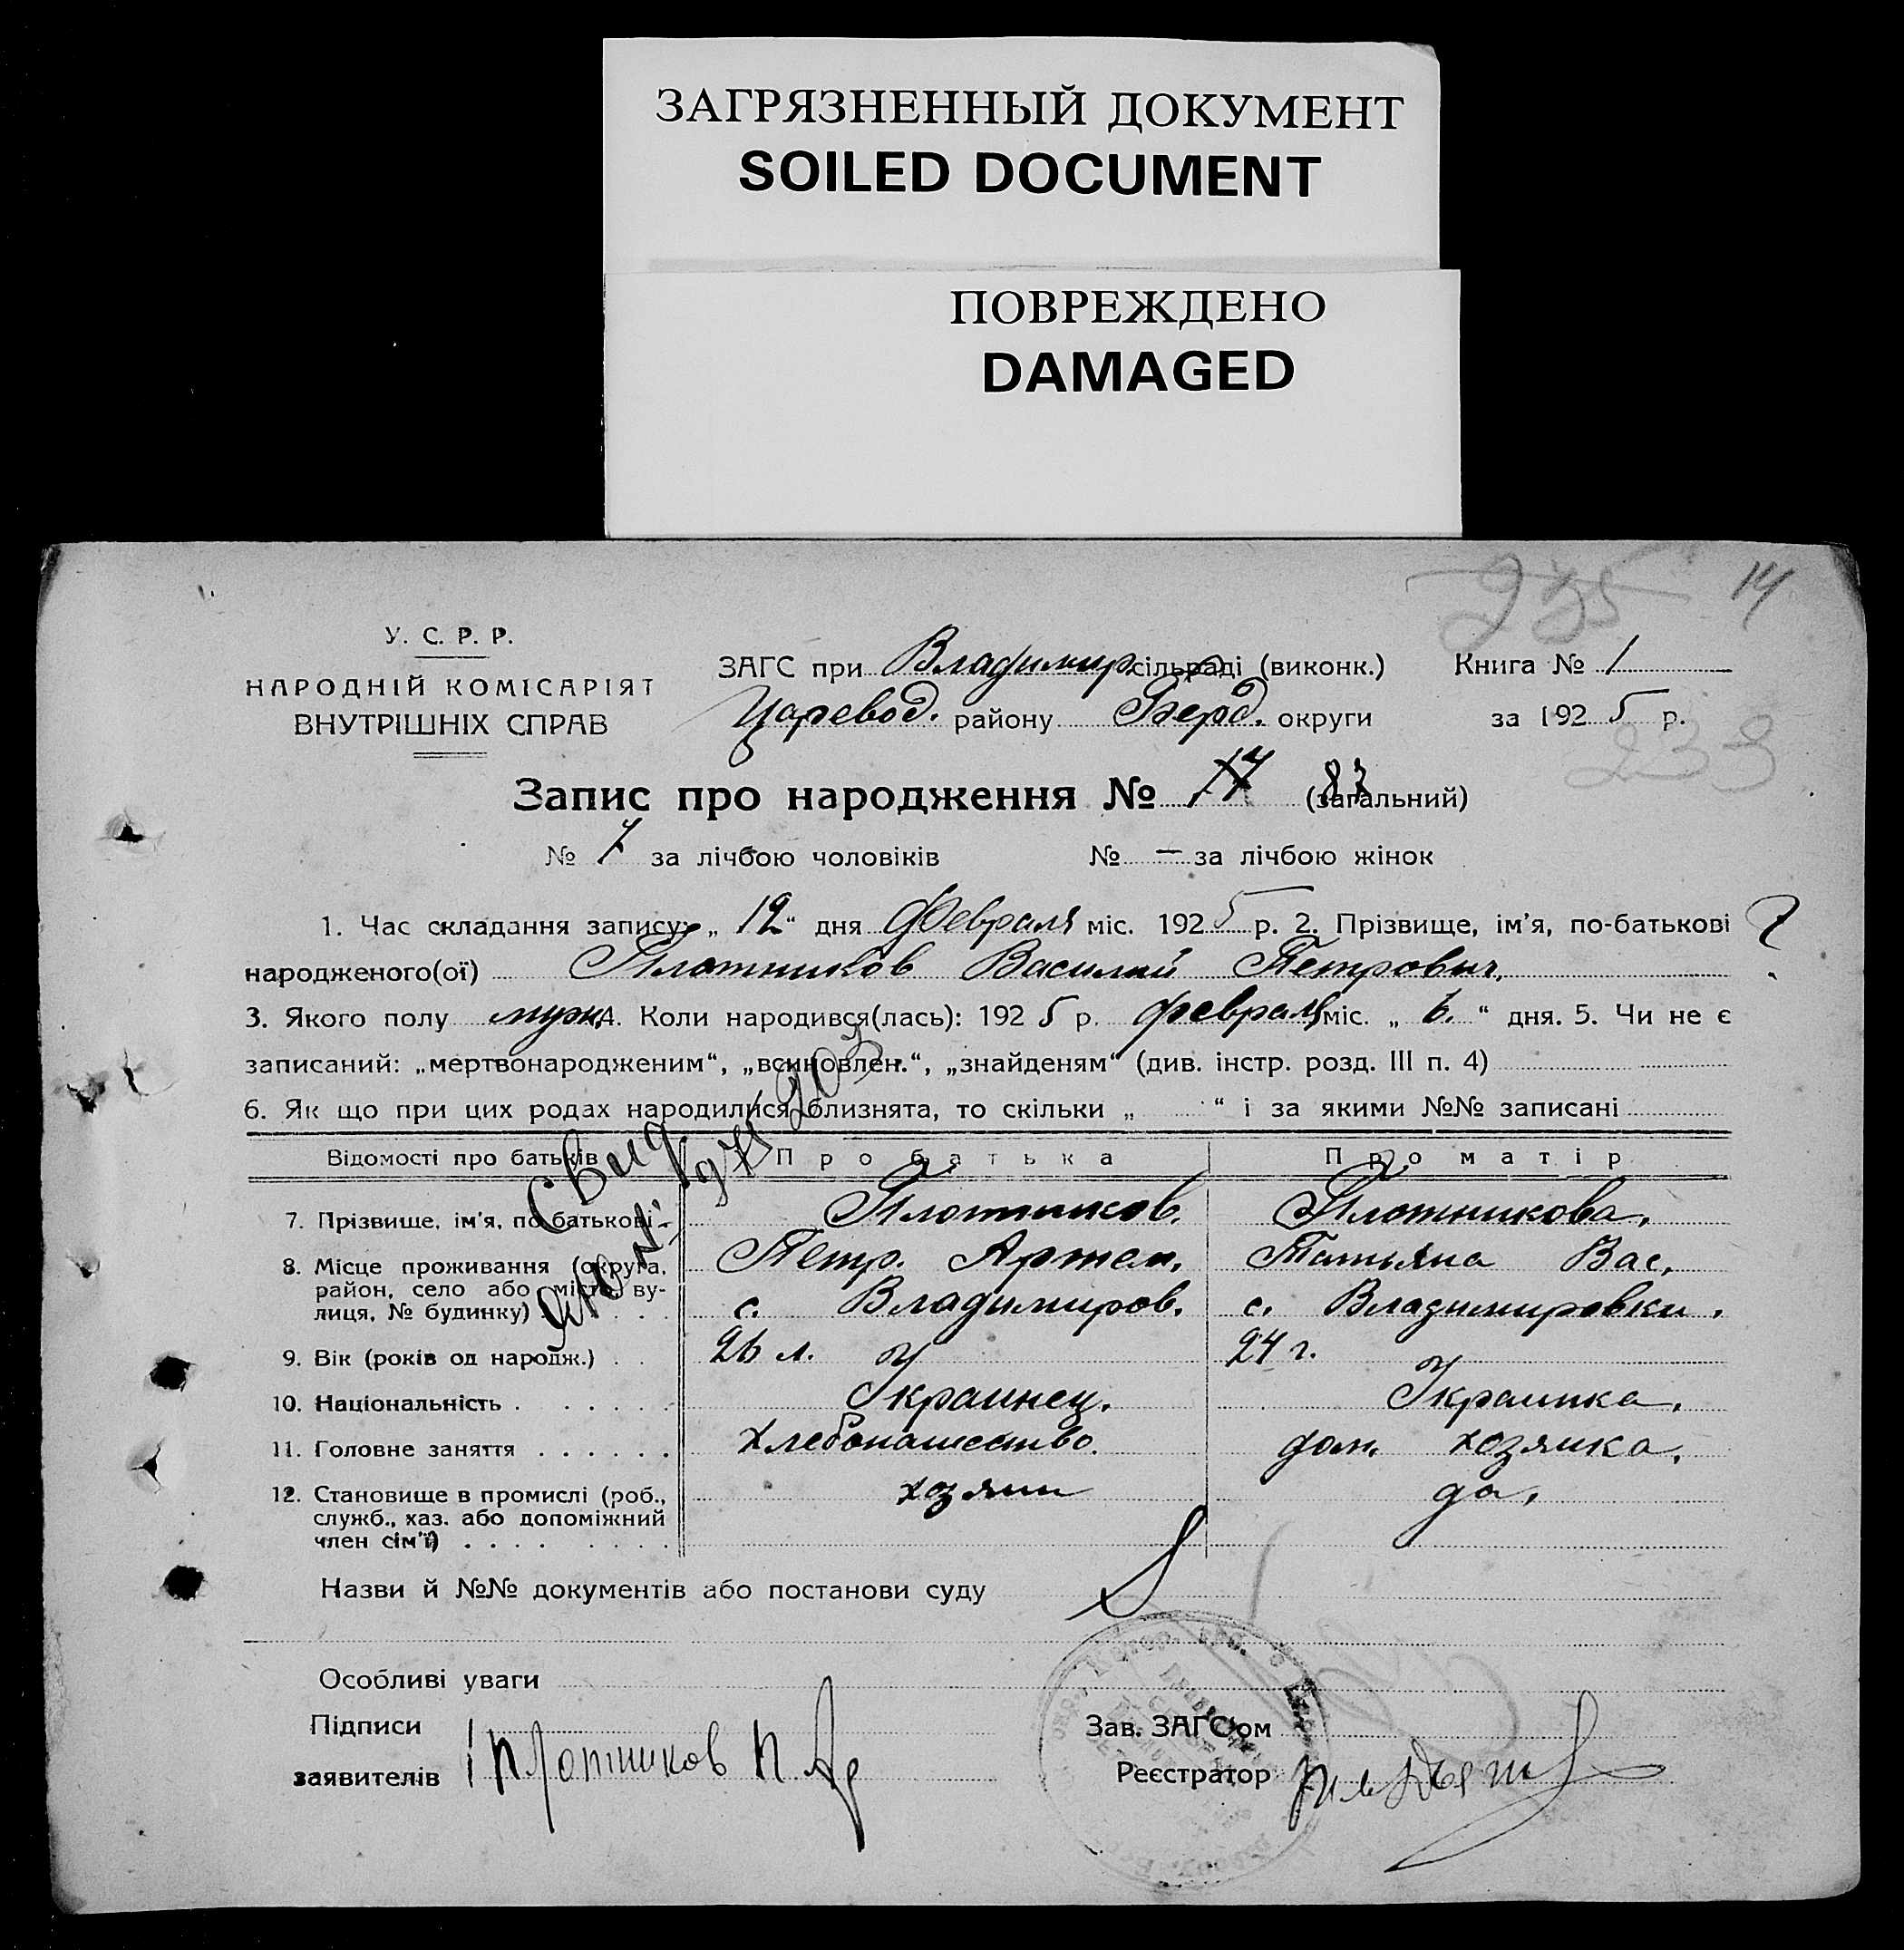 ЗАГРЯЗНЕННЫЙ ДОКУМЕНТ
SOILED DOCUMENT
ПОВРЕЖДЕНО
DAMAGED
235 14
У. С. Р. Р.
НАРОДНІЙ КОМІСАРІЯТ
ВНУТРІШНІХ СПРАВ
ЗАГС при Владимир. сільраді (виконк.) Книга № 1
Царевод. району Берд. округи за 1925 р.
233
Запис про народження № 14 83 (загальний)
№ 7 за лічбою чоловіків № — за лічбою жінок
1. Час складання запису: „12“ дня Февраля міс. 1925 р. 2. Прізвище, ім'я, по-батькові
народженого(ої) Плотников Василий Петрович.
3. Якого полу муж. 4. Коли народився(лась): 1925 р. февраля міс. „6.“ дня. 5. Чи не є
записаний: „мертвонародженим“, „всиновлен.“, „знайденям“ (див. інстр. розд. III п. 4)
6. Як що при цих родах народилися близнята, то скільки „ “ і за якими №№ записані
Відомості про батьків Про батька Про матір
7. Прізвище, ім'я, по батькові Плотников. Плотникова.
8. Місце проживання (округа, Петр. Артем. Татьяна Вас.
район, село або місто, вулиця, № будинку) с. Владимиров. с. Владимировки.
9. Вік (років од народж.) 26 л. 24 г.
10. Національність Украинец. Украинка.
11. Головне заняття Хлебопашество. дом. хозяйка.
12. Становище в промислі (роб., хозяин да.
служб., хаз. або допоміжний
член сім'ї)
Свид.
Назви й №№ документів або постанови суду
Особливі уваги
Підписи
заявителів Плотников П. Ар
Зав. ЗАГС'ом
Реєстратор